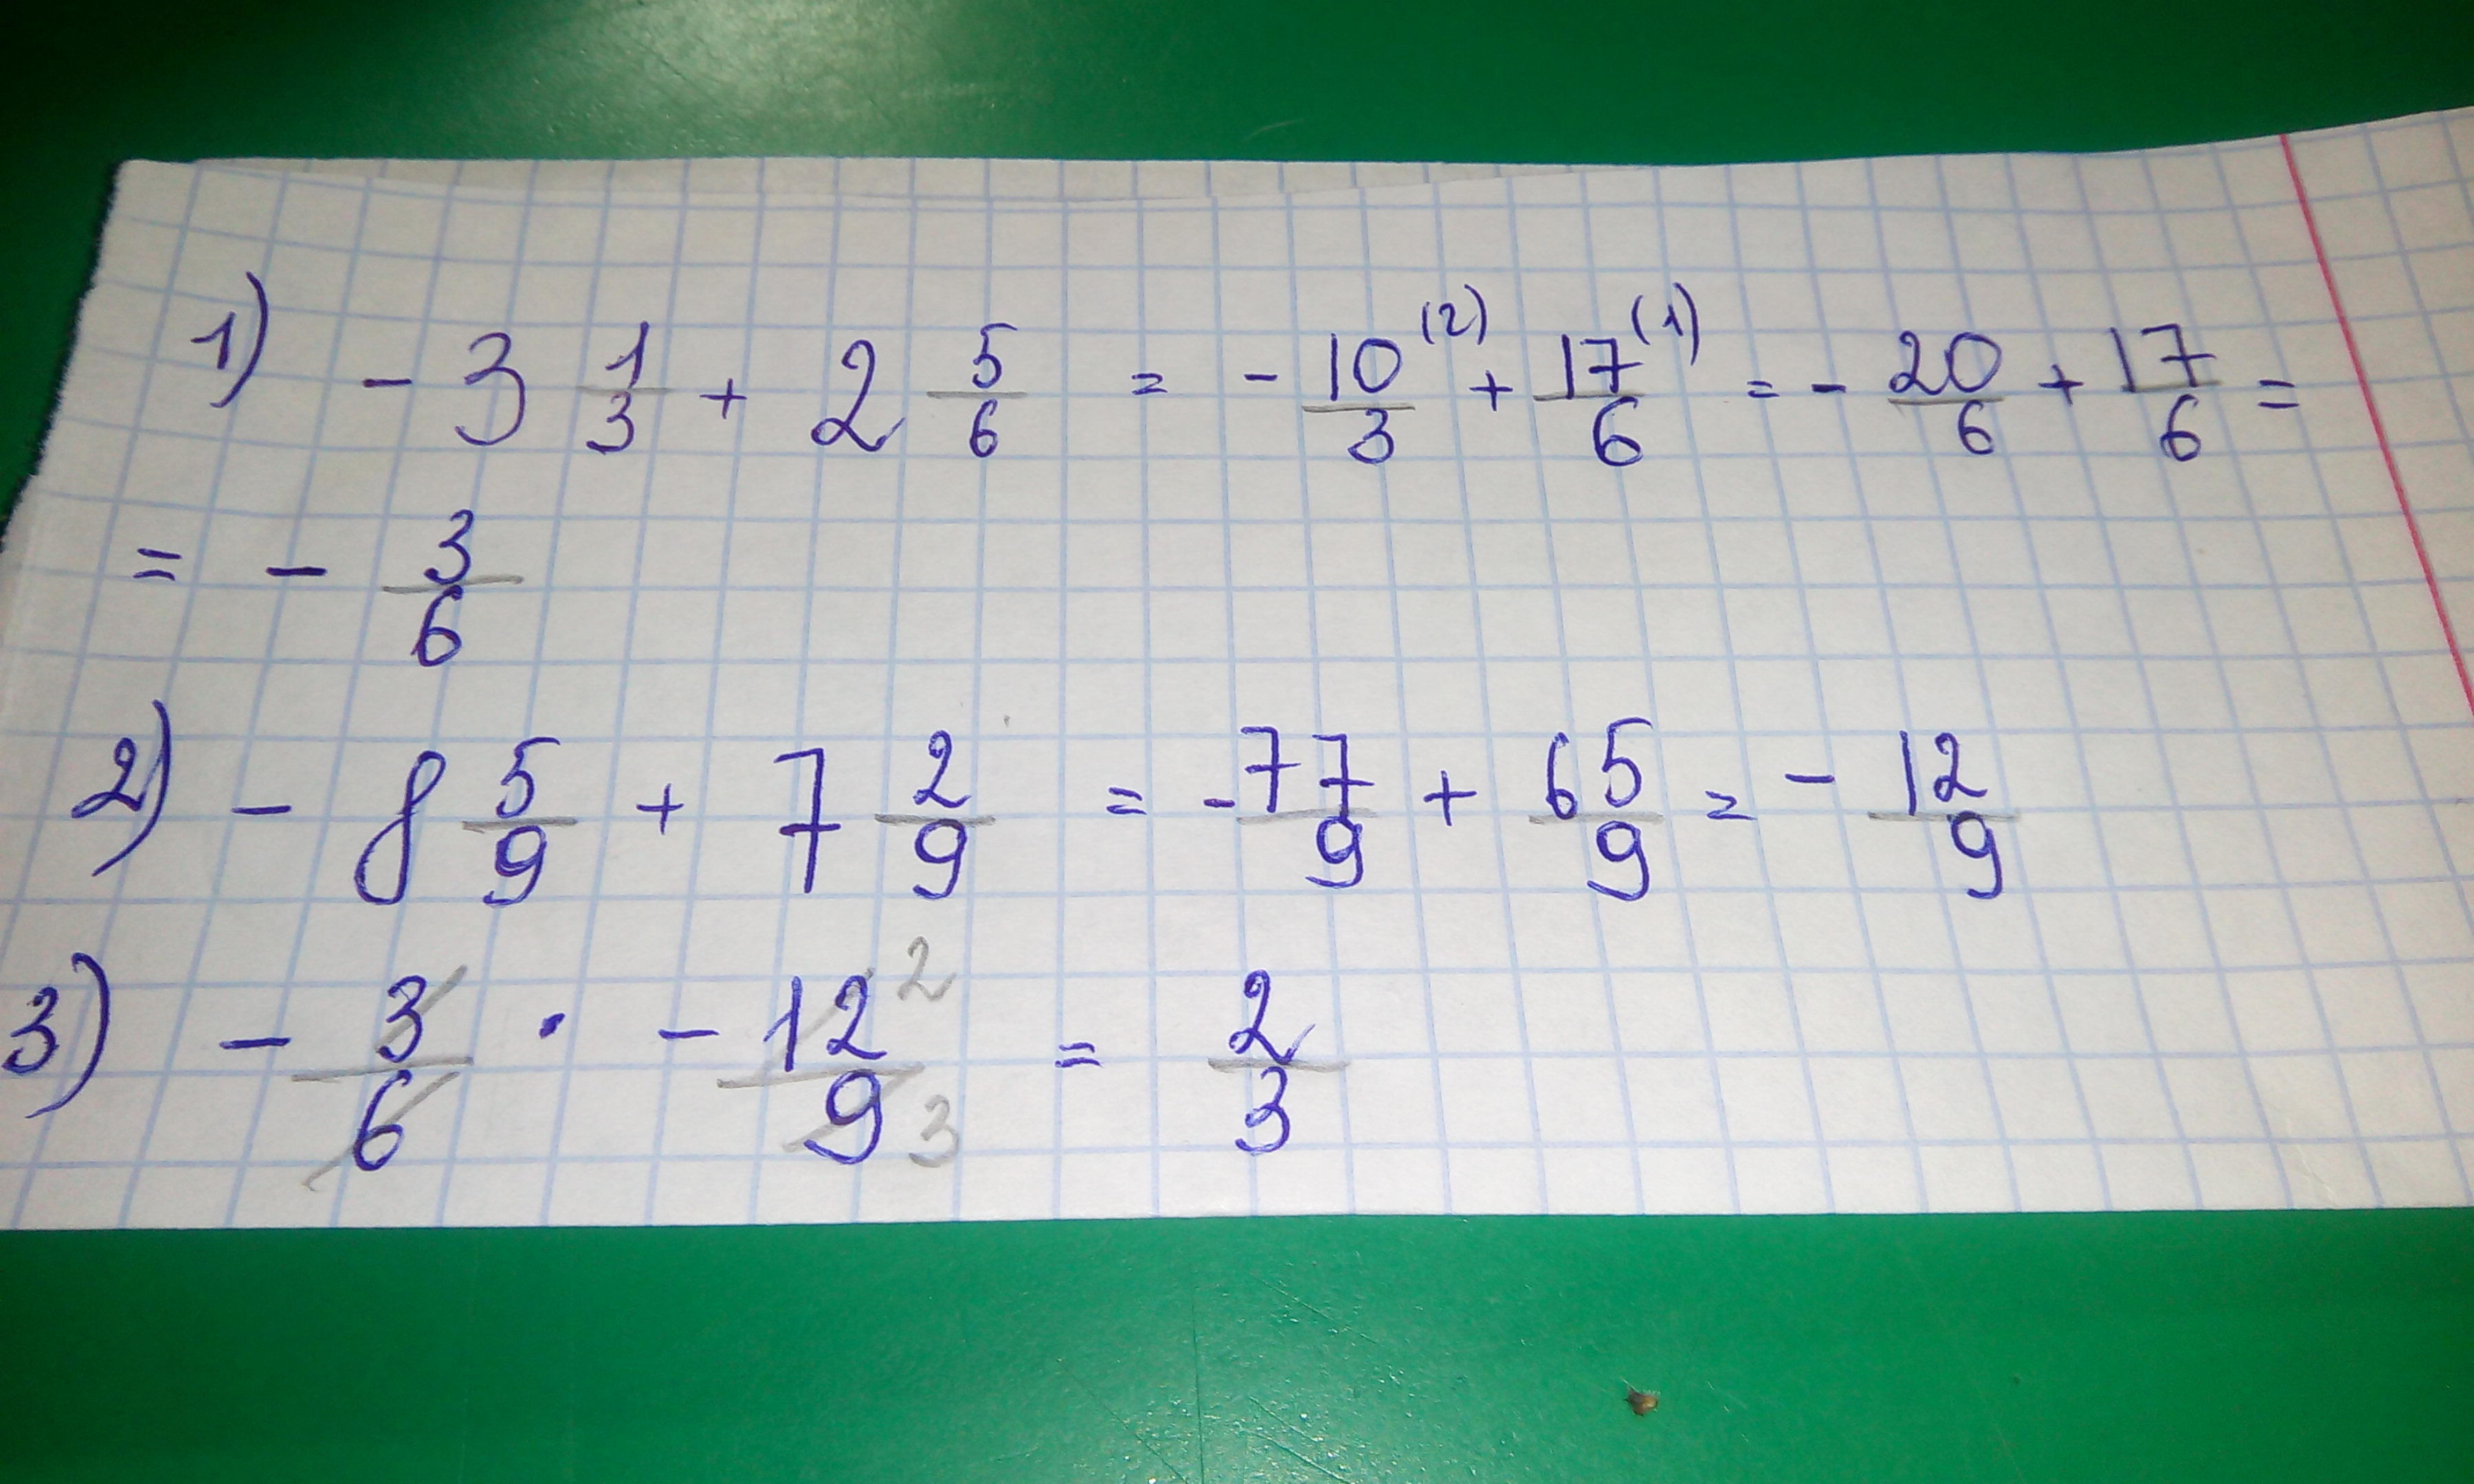 1) - 3 1/3 + 2 5/6 = - 10/3 (2) + 17/6 (1) = - 20/6 + 17/6 =
= - 3/6
2) - 8 5/9 + 7 2/9 = - 77/9 + 65/9 = - 12/9
3) - 3/6 · - 12/9 2 3 = 2/3